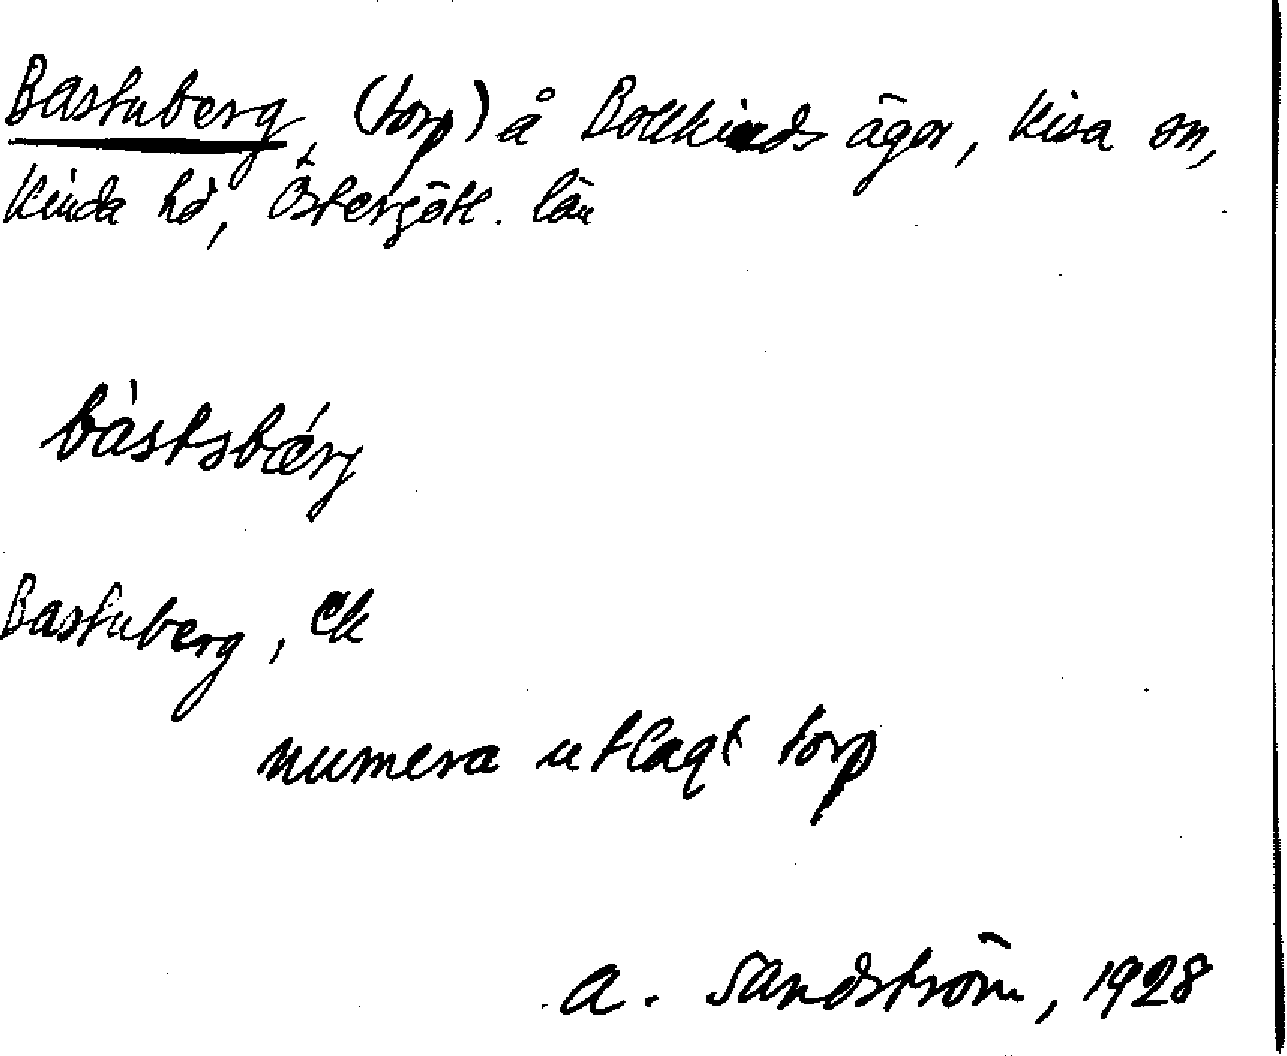 Bastuberg, (torp) å Bollkinds ägor, Kisa sn,
Kinda hd, Östergötl. län
bàstsbǽrj
Bastuberg, Ek
numera utlagt torp
A. Sandström, 1928